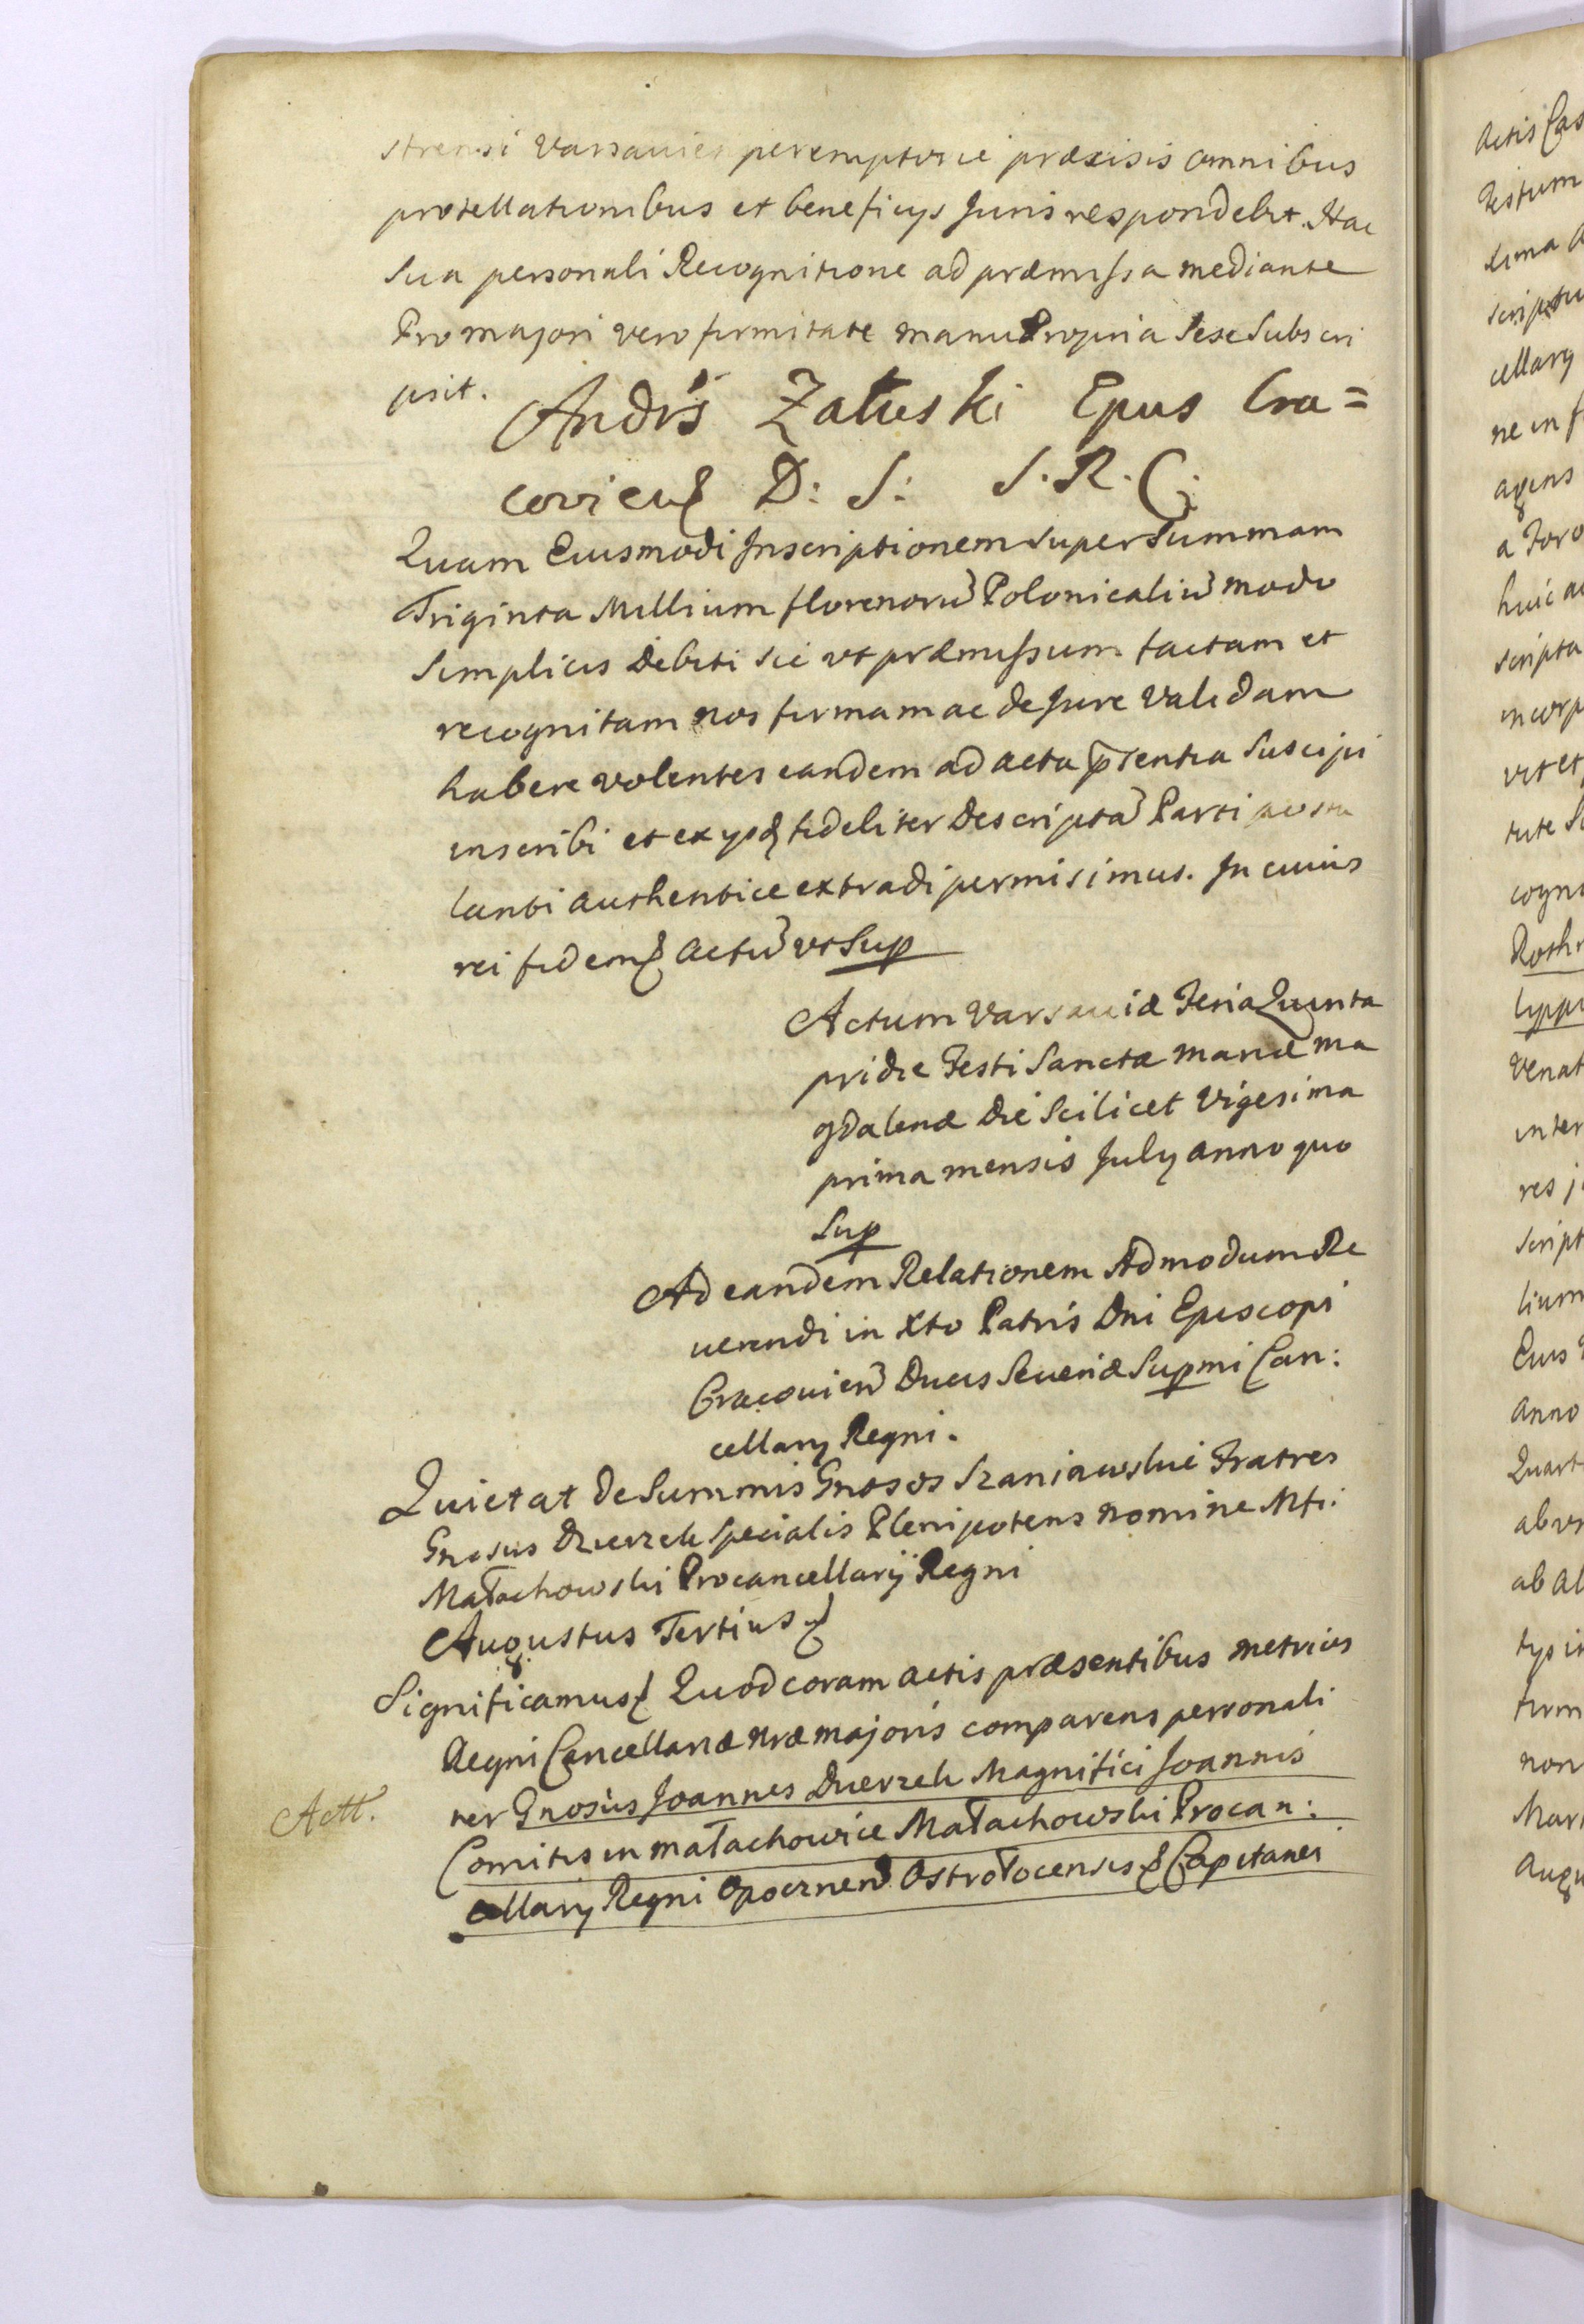 strensi Varsauien peremptorie præcisis omnibus
protellationibus et beneficys Juris respondebit. Hac
sua personali Recognitione ad præmissa mediante
Pro majori vero firmitate manu Propria sese Subscri
psit.
Andrs Załuski Epus Cra=
D: S: S.R.C.
Quam Eiusmodi Inscriptionem super Summam
Triginta Millium florenorũ Polonicaliũ modo
Simplicis Debiti sic vt præmissum factam et
recognitam nos firmam ac de Jure Validam
habere volentes eandem ad acta prentia Suscipi
inscribi et ex ys fideliter Descriptã Parti postu
lanti authentice extradi permisimus. In cuius
rei fidem Actũ vt Sup
Actum Varsauiæ Feria Quinta
pridie Festi Sanctæ Mariæ Ma
gdalenæ Die scilicet Vigesima
prima mensis July anno quo
Sup
Ad eandem Relationem Admodum Re
uerendi in Xto Patris Dni Episcopi
Cracouien Ducis Seueriæ Supmi Can:
cellary Regni.
Quietat de Summis Gnosos Szaniawskie Fratres
Gnosus Specialis Plenipotens nomine Mfi:
Małachowski Procancellarÿ Regni
Augustus Tertius
Significamus Quod coram actis præsentibus metrices
Regni Cancellariæ nræ majoris comparens personali
Actt.
ter Gnosus Joannes Magnifici Joannis
Comitis in Małachowice Małachowski Procan:
cellary Regni Opocznen Ostrołocensis Capitanei
actis Cas
Festum
scriptu
cellary
ne in f
agens
a Foro
huic a
scripta
incorp
vt et
tute S
cogn
Roth
venat
inter
res j
script
lium
Eius
Anno
Quart
ab al
non
Mar
Augu